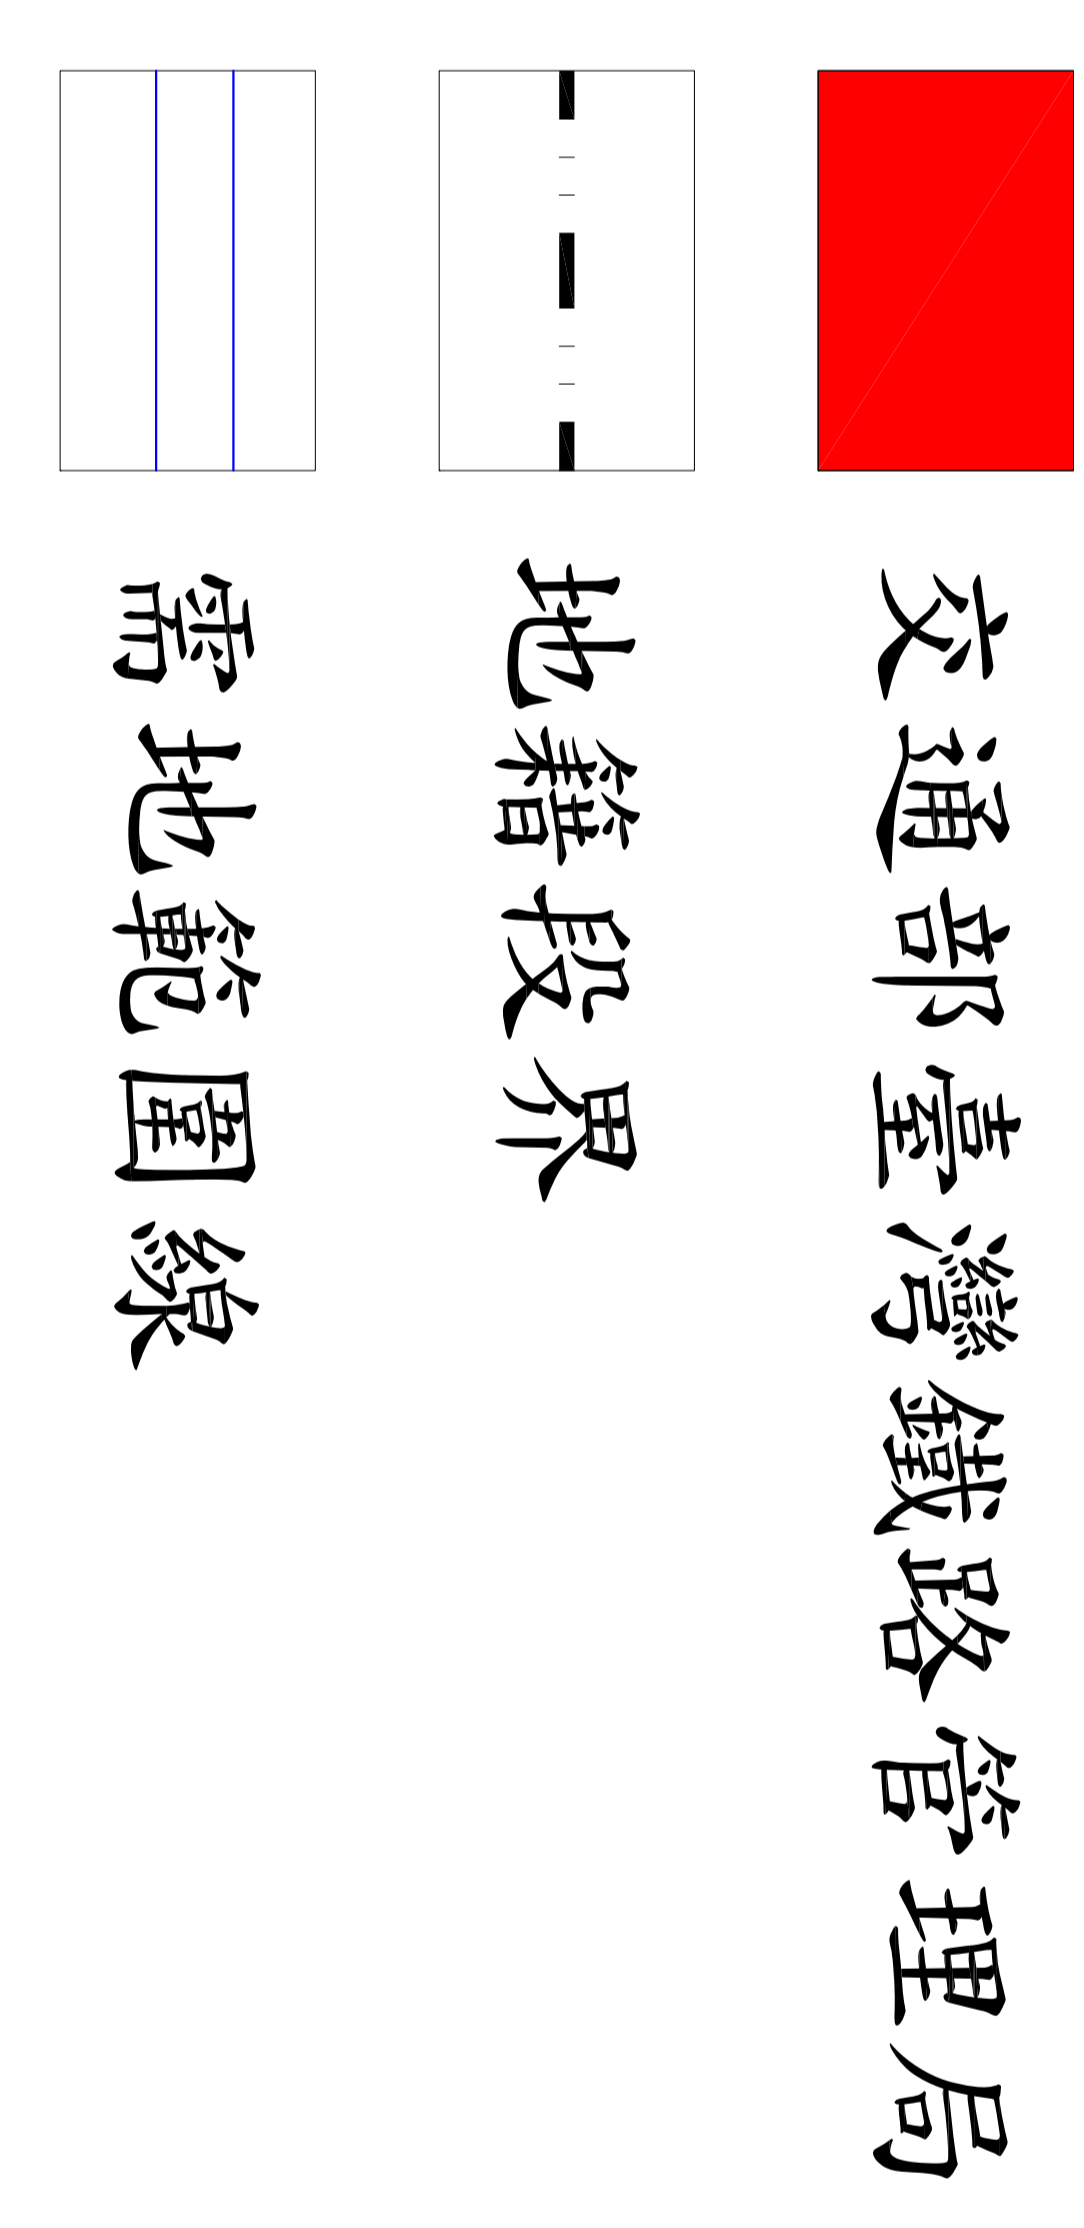 交通部臺灣鐵路管理局
地籍段界
需地範圍線